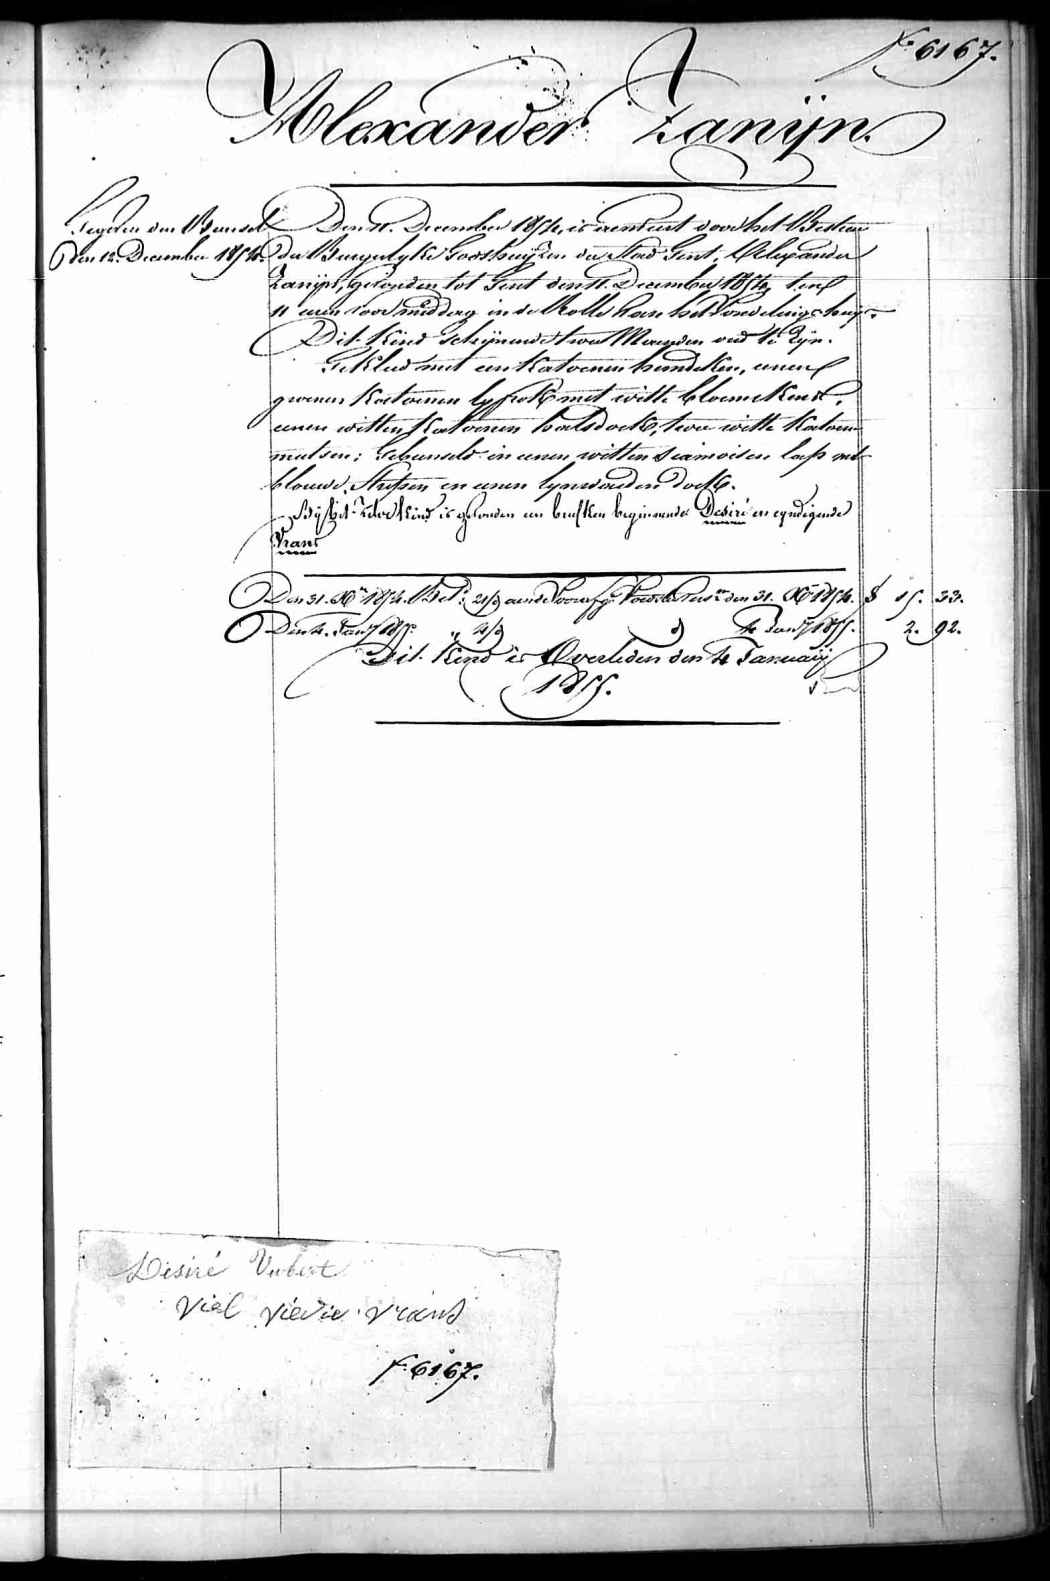 f.° 6167.
Alexander Zanijn.
Den 12. December 1854.
Den 11. December 1854, is aenveerd door het Bestier
der Burgerlyke Godshuijzen der Stad Gent, Alexander
Zanijn, gevonden tot Gent den 11. December 1854, ten
11 uren voormiddag in de Rolle van het Vondelings-huijs.
Dit Kind schijnende twee Maenden oud te Zijn.
Gekleed met een Katoenen hemdeken, eenen
groenen Katoenen lyfrok met witte bloemekens,
eenen witten Katoenen halsdoek, twee witte Katoene
mutsen; Gebunseld in eenen witten siamoisen lap met
blauwe Strepen en eenen lynwaeden doek.
Bij het Zelve Kind is gevonden een briefken beginnende Desiré en eyndigende
Vrans
Den 31. Xber 1854. 21/9 den 31. Xber 1854. 15. 33.
Den 4. Janry 1855. " 21/9 d° 4 Janry 1855. 2. 92.
Dit Kind is Overleden den 4 Januarij
1855.
Désiré
Viel Vrans
f.° 6167.